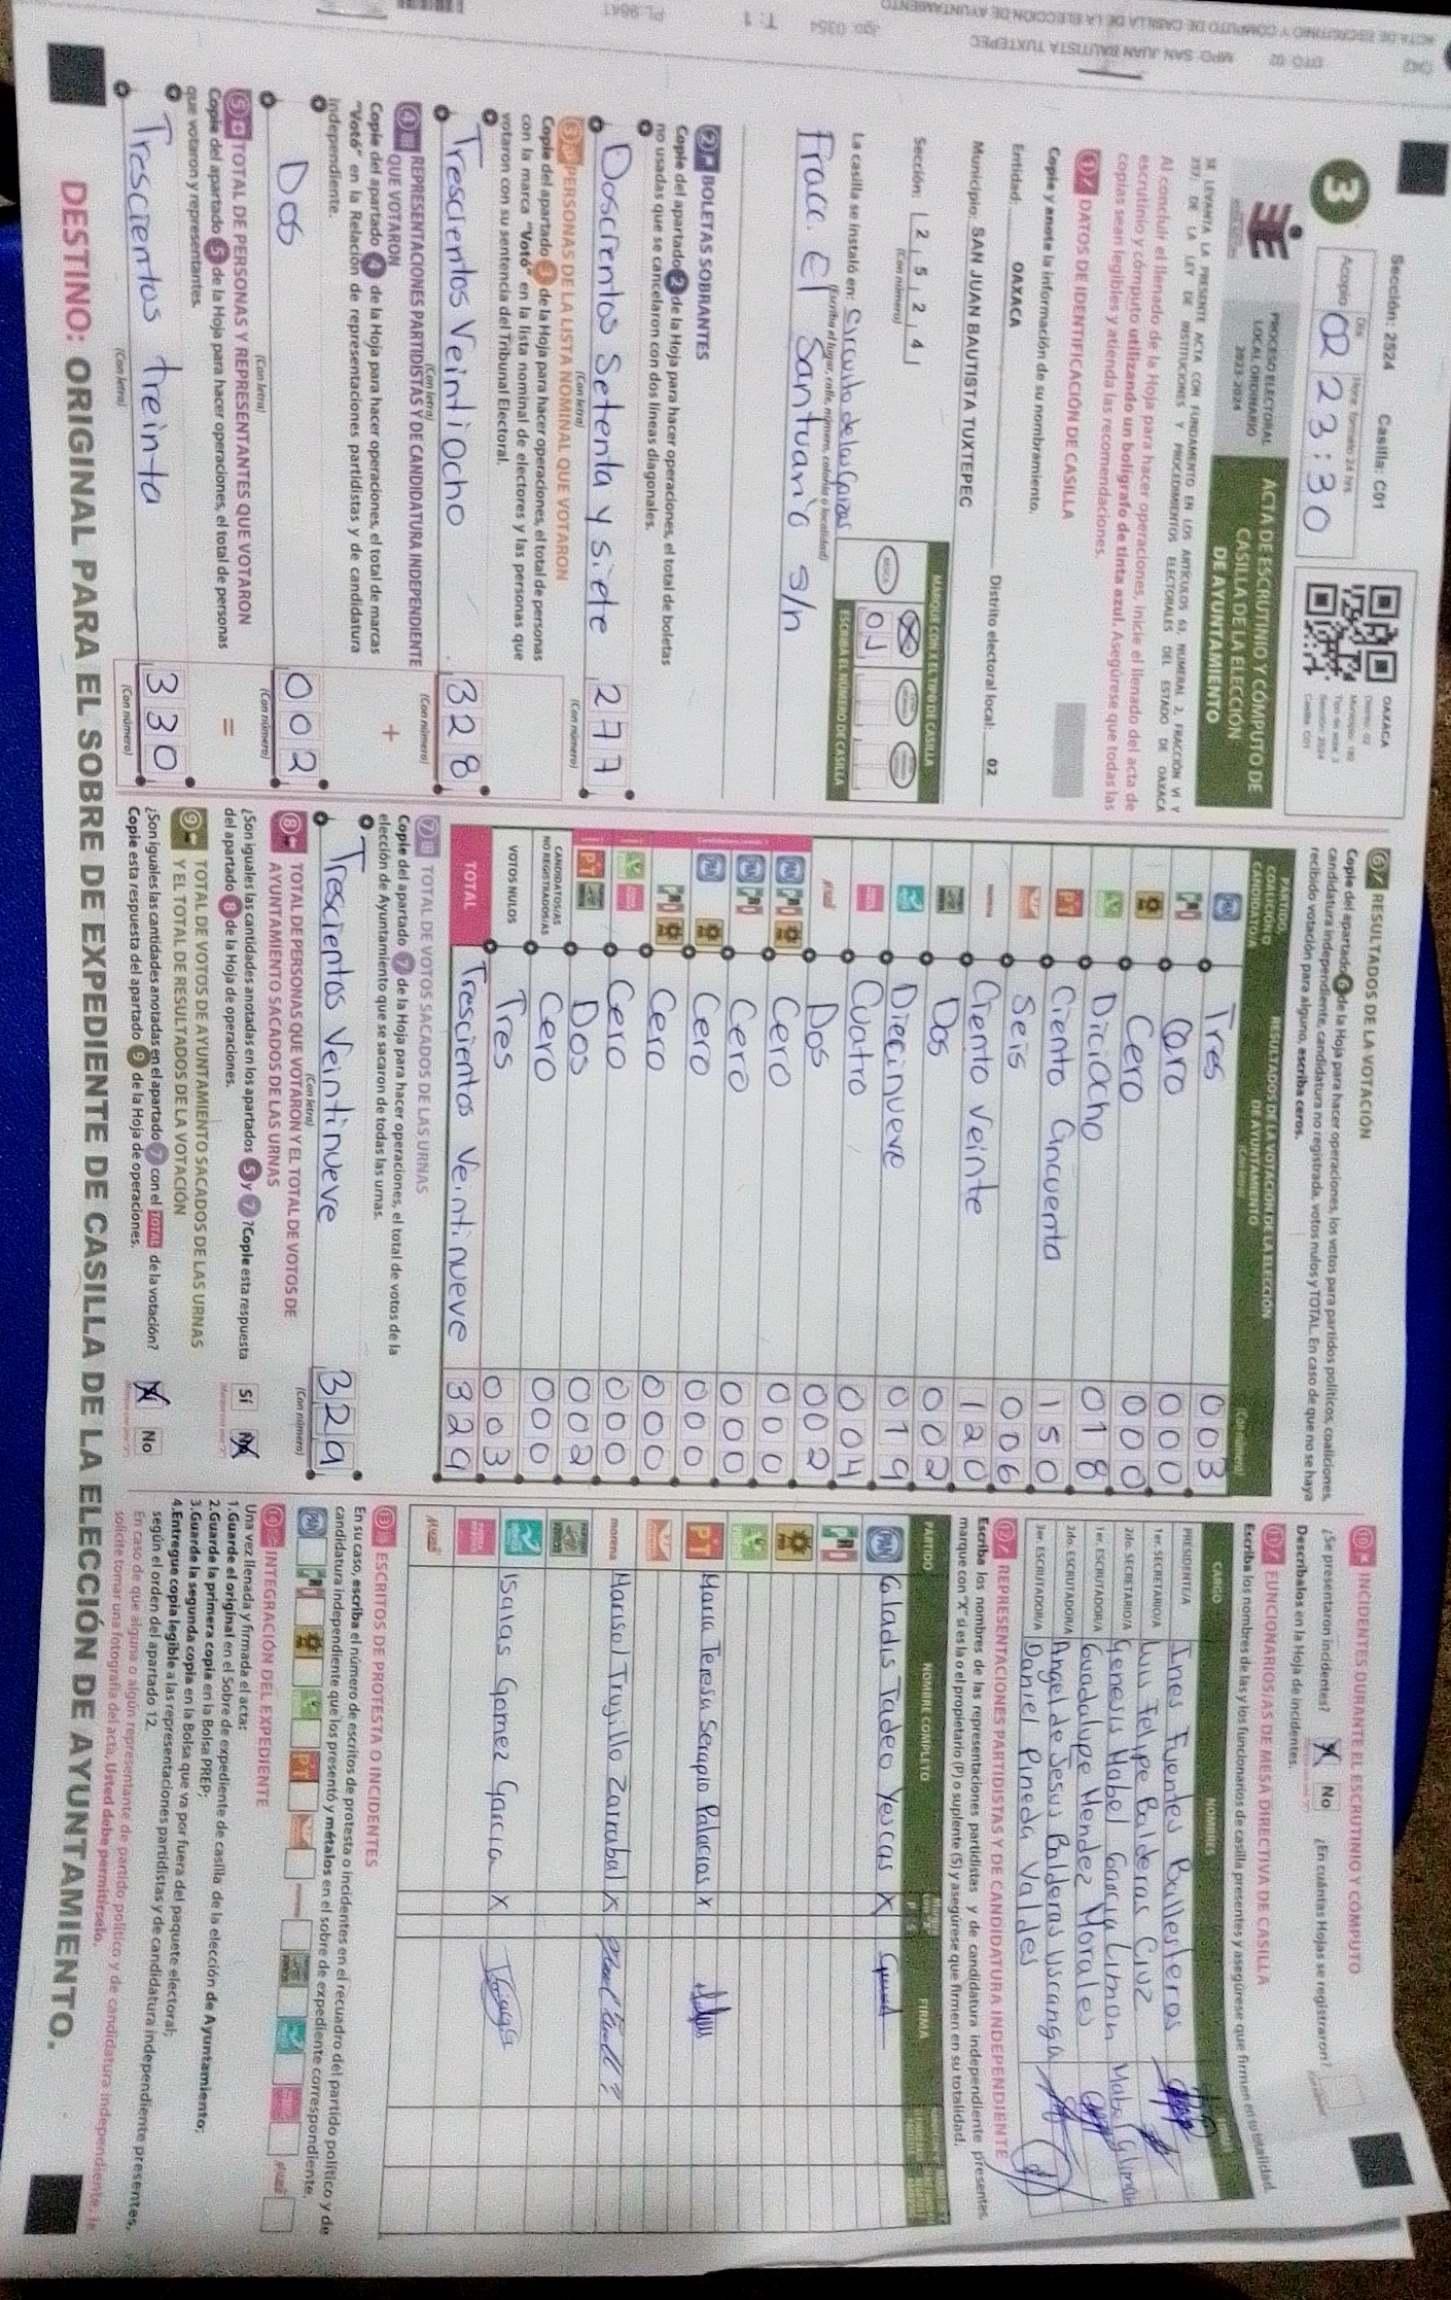 ACTA DE ESCRUTINIO Y CÓMPUTO DE CASILLA DE LA ELECCIÓN DE AYUNTAMIENTO
DTO: 02 MPO: SAN JUAN BAUTISTA TUXTEPEC
T: 1
Sección: 2524 Casilla: C01
3
Acopio
Día
Hora formato 24 hrs
02 23:30
OAXACA
PROCESO ELECTORAL
LOCAL ORDINARIO
2023-2024
ACTA DE ESCRUTINIO Y CÓMPUTO DE
CASILLA DE LA ELECCIÓN
DE AYUNTAMIENTO
SE LEVANTA LA PRESENTE ACTA CON FUNDAMENTO EN LOS ARTÍCULOS 63, NUMERAL 2, FRACCIÓN VI Y
237, DE LA LEY DE INSTITUCIONES Y PROCEDIMIENTOS ELECTORALES DEL ESTADO DE OAXACA
Al concluir el llenado de la Hoja para hacer operaciones, inicie el llenado del acta de
escrutinio y cómputo utilizando un bolígrafo de tinta azul. Asegúrese que todas las
copias sean legibles y atienda las recomendaciones.
1 DATOS DE IDENTIFICACIÓN DE CASILLA
Copie y anote la información de su nombramiento.
Entidad: OAXACA Distrito electoral local: 02
Municipio: SAN JUAN BAUTISTA TUXTEPEC
Sección: 2 5 2 4
(Con número)
MARQUE CON X EL TIPO DE CASILLA
BÁSICA
01
ESCRIBA EL NÚMERO DE CASILLA
La casilla se instaló en: Circuito de las Garzas
(Escriba el lugar, calle, número, colonia o localidad)
Fracc. El Santuario s/n
2 BOLETAS SOBRANTES
Copie del apartado 2 de la Hoja para hacer operaciones, el total de boletas
no usadas que se cancelaron con dos líneas diagonales.
Doscientos Setenta y siete 277
(Con letra) (Con número)
3 PERSONAS DE LA LISTA NOMINAL QUE VOTARON
Copie del apartado 3 de la Hoja para hacer operaciones, el total de personas
con la marca "Votó" en la lista nominal de electores y las personas que
votaron con su sentencia del Tribunal Electoral.
Trescientos Veintiocho 328
(Con letra) (Con número)
4 REPRESENTACIONES PARTIDISTAS Y DE CANDIDATURA INDEPENDIENTE
QUE VOTARON
Copie del apartado 4 de la Hoja para hacer operaciones, el total de marcas
"Votó" en la Relación de representaciones partidistas y de candidatura
independiente.
+
Dos 002
(Con letra) (Con número)
5 TOTAL DE PERSONAS Y REPRESENTANTES QUE VOTARON
Copie del apartado 5 de la Hoja para hacer operaciones, el total de personas
que votaron y representantes.
=
Trescientos treinta 330
(Con letra) (Con número)
6 RESULTADOS DE LA VOTACIÓN
Copie del apartado 6 de la Hoja para hacer operaciones, los votos para partidos políticos, coaliciones,
candidatura independiente, candidatura no registrada, votos nulos y TOTAL. En caso de que no se haya
recibido votación para alguno, escriba ceros.
PARTIDO, COALICIÓN O CANDIDATO/A
RESULTADOS DE LA VOTACIÓN DE LA ELECCIÓN
DE AYUNTAMIENTO
(Con letra) (Con número)
PAN Tres 003
PRI Cero 000
Cero 000
Diciocho 018
PT Ciento Cincuenta 150
Seis 006
morena Ciento Veinte 120
Dos 002
Diecinueve 019
Cuatro 004
Dos 002
PAN PRI Cero 000
PAN PRI Cero 000
PAN Cero 000
PRI Cero 000
Cero 000
PT Dos 002
CANDIDATOS/AS NO REGISTRADOS/AS Cero 000
VOTOS NULOS Tres 003
TOTAL Trescientos Veintinueve 329
7 TOTAL DE VOTOS SACADOS DE LAS URNAS
Copie del apartado 7 de la Hoja para hacer operaciones, el total de votos de la
elección de Ayuntamiento que se sacaron de todas las urnas.
Trescientos Veintinueve 329
(Con letra) (Con número)
8 TOTAL DE PERSONAS QUE VOTARON Y EL TOTAL DE VOTOS DE
AYUNTAMIENTO SACADOS DE LAS URNAS
¿Son iguales las cantidades anotadas en los apartados 5 y 7? Copie esta respuesta
del apartado 8 de la Hoja de operaciones.
Sí No
9 TOTAL DE VOTOS DE AYUNTAMIENTO SACADOS DE LAS URNAS
Y EL TOTAL DE RESULTADOS DE LA VOTACIÓN
¿Son iguales las cantidades anotadas en el apartado 7 con el TOTAL de la votación?
Copie esta respuesta del apartado 9 de la Hoja de operaciones.
No
10 INCIDENTES DURANTE EL ESCRUTINIO Y CÓMPUTO
¿Se presentaron incidentes? No ¿En cuántas Hojas se registraron?
Descríbalos en la Hoja de incidentes.
11 FUNCIONARIOS/AS DE MESA DIRECTIVA DE CASILLA
Escriba los nombres de las y los funcionarios de casilla presentes y asegúrese que firmen en su totalidad.
CARGO NOMBRES
PRESIDENTE/A Ines Fuentes Ballesteros
1er. SECRETARIO/A Luis Felipe Balderas Cruz
2do. SECRETARIO/A Genesis Mabel Garcia Limon
1er. ESCRUTADOR/A Guadalupe Mendez Morales
2do. ESCRUTADOR/A Angel de Jesus Balderas Uscanga
3er. ESCRUTADOR/A Daniel Pineda Valdes
12 REPRESENTACIONES PARTIDISTAS Y DE CANDIDATURA INDEPENDIENTE
Escriba los nombres de las representaciones partidistas y de candidatura independiente presentes,
marque con "X" si es la o el propietario (P) o suplente (S) y asegúrese que firmen en su totalidad.
PARTIDO NOMBRE COMPLETO P S FIRMA
PAN Gladis Tadeo Yescas X
PRI
PT Maria Teresa Serapio Palacios X
morena Marisol Trujillo Zarrabal X
Isaias Gomez Garcia X
13 ESCRITOS DE PROTESTA O INCIDENTES
En su caso, escriba el número de escritos de protesta o incidentes en el recuadro del partido político y de
candidatura independiente que los presentó y métalos en el sobre de expediente correspondiente.
PAN PRI PT
14 INTEGRACIÓN DEL EXPEDIENTE
Una vez llenada y firmada el acta:
1.Guarde el original en el Sobre de expediente de casilla de la elección de Ayuntamiento;
2.Guarde la primera copia en la Bolsa PREP;
3.Guarde la segunda copia en la Bolsa que va por fuera del paquete electoral;
4.Entregue copia legible a las representaciones partidistas y de candidatura independiente presentes,
según el orden del apartado 12.
En caso de que alguna o algún representante de partido político y de candidatura independiente, le
solicite tomar una fotografía del acta, Usted debe permitírselo.
DESTINO: ORIGINAL PARA EL SOBRE DE EXPEDIENTE DE CASILLA DE LA ELECCIÓN DE AYUNTAMIENTO.